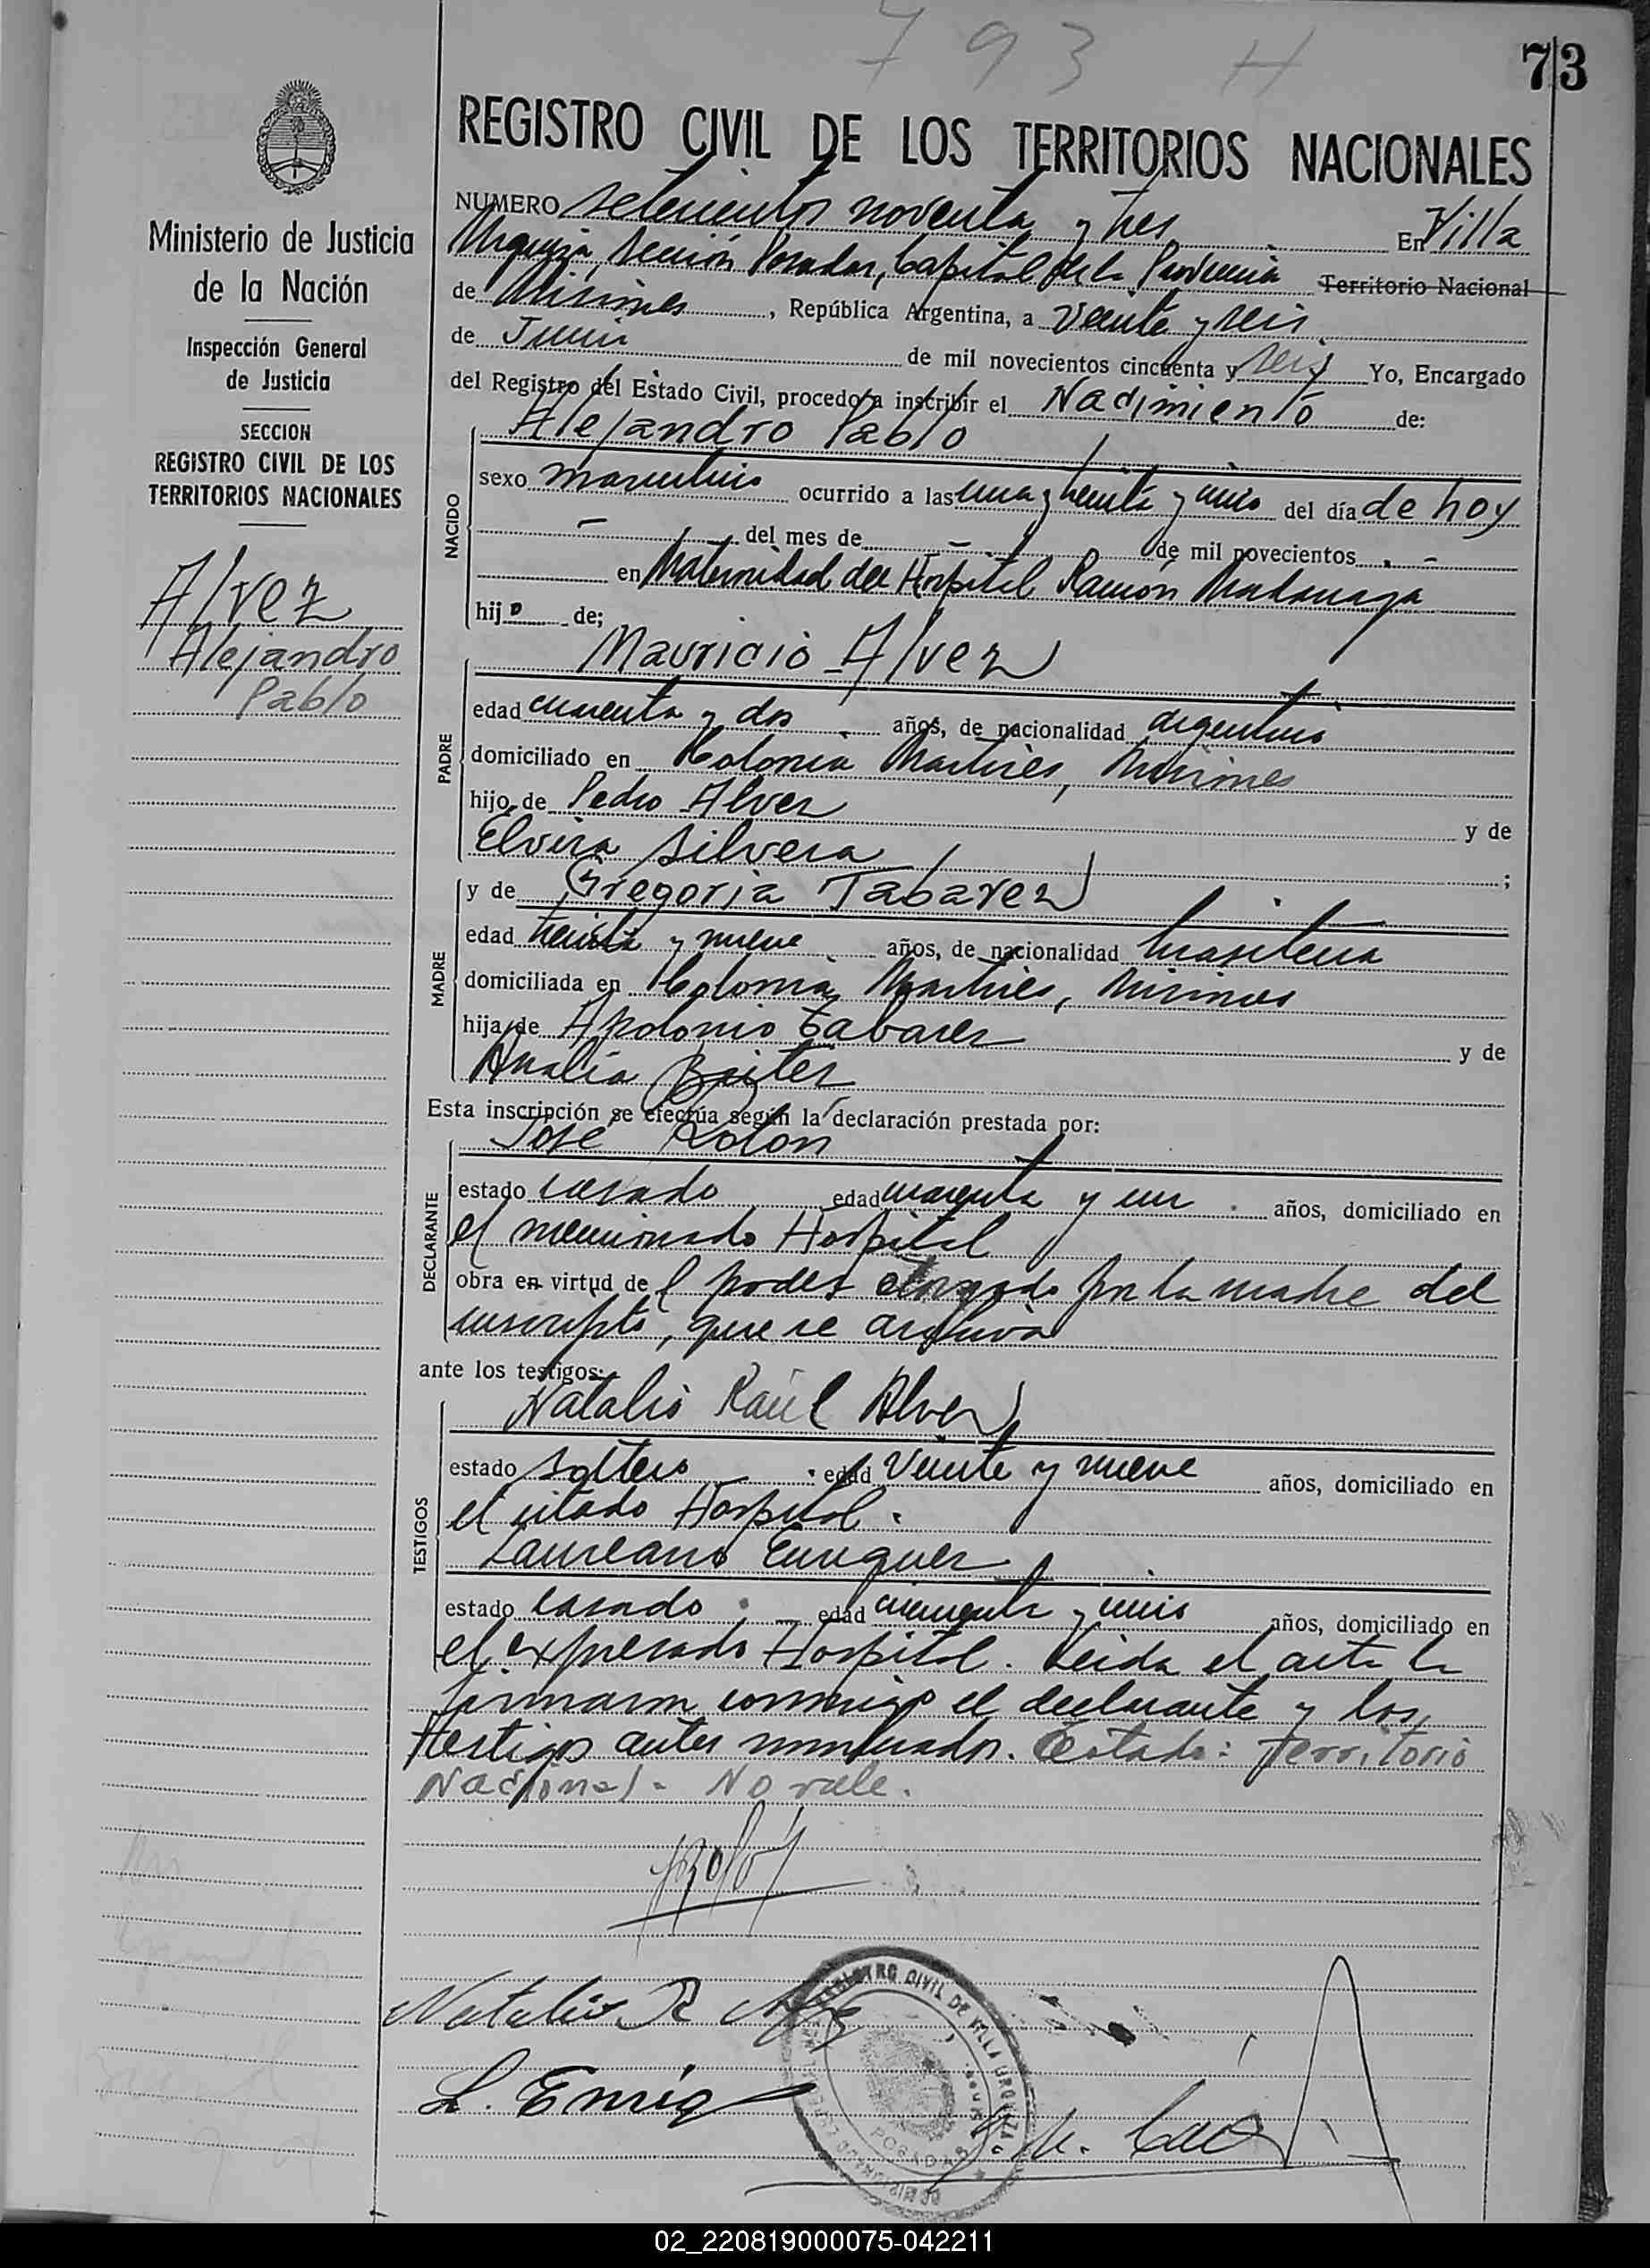 793 H
73
REGISTRO CIVIL DE LOS TERRITORIOS NACIONALES
Ministerio de Justicia
de la Nación
Inspección General
de Justicia
SECCION
REGISTRO CIVIL DE LOS
TERRITORIOS NACIONALES
Alvez
Alejandro
Pablo
NUMERO setecientos noventa y tres En Villa
Urquiza, Sección Posadas, Capital de la Provincia Territorio Nacional
de Misiones, República Argentina, a veinte y seis
de Junio de mil novecientos cincuenta y seis Yo, Encargado
del Registro del Estado Civil, procedo a inscribir el Nacimiento de:
NACIDO
Alejandro Pablo
sexo masculino ocurrido a las una y treinta y cinco del día de hoy
— del mes de — de mil novecientos —
en Maternidad del Hospital Ramón Madariaga
hijo de;
PADRE
Mauricio Alvez
edad cuarenta y dos años, de nacionalidad argentino
domiciliado en Colonia Martires, Misiones
hijo de Pedro Alvez y de
Elvira Silvera ;
MADRE
y de Gregoria Tabarez
edad treinta y nueve años, de nacionalidad brasilera
domiciliada en Colonia Martires, Misiones
hija de Apolonio Tabarez y de
Analia
Esta inscripción se efectúa según la declaración prestada por:
DECLARANTE
José Rolon
estado casado edad cuarenta y un años, domiciliado en
el mencionado Hospital
obra en virtud del poder otorgado por la madre del
inscripto, que se archiva
ante los testigos:
TESTIGOS
Natalio Raúl Alvez
estado soltero edad veinte y nueve años, domiciliado en
el citado Hospital.
Laureano Enriquez
estado casado edad cincuenta y cinco años, domiciliado en
el expresado Hospital. Leida el acta la
firmaron conmigo el declarante y los
testigos antes nombrados. Testado: Territorio
Nacional - No vale.
Natalio R
L. Enriq
REGISTRO CIVIL DE VILLA URQUIZA
POSADAS
02_220819000075-042211